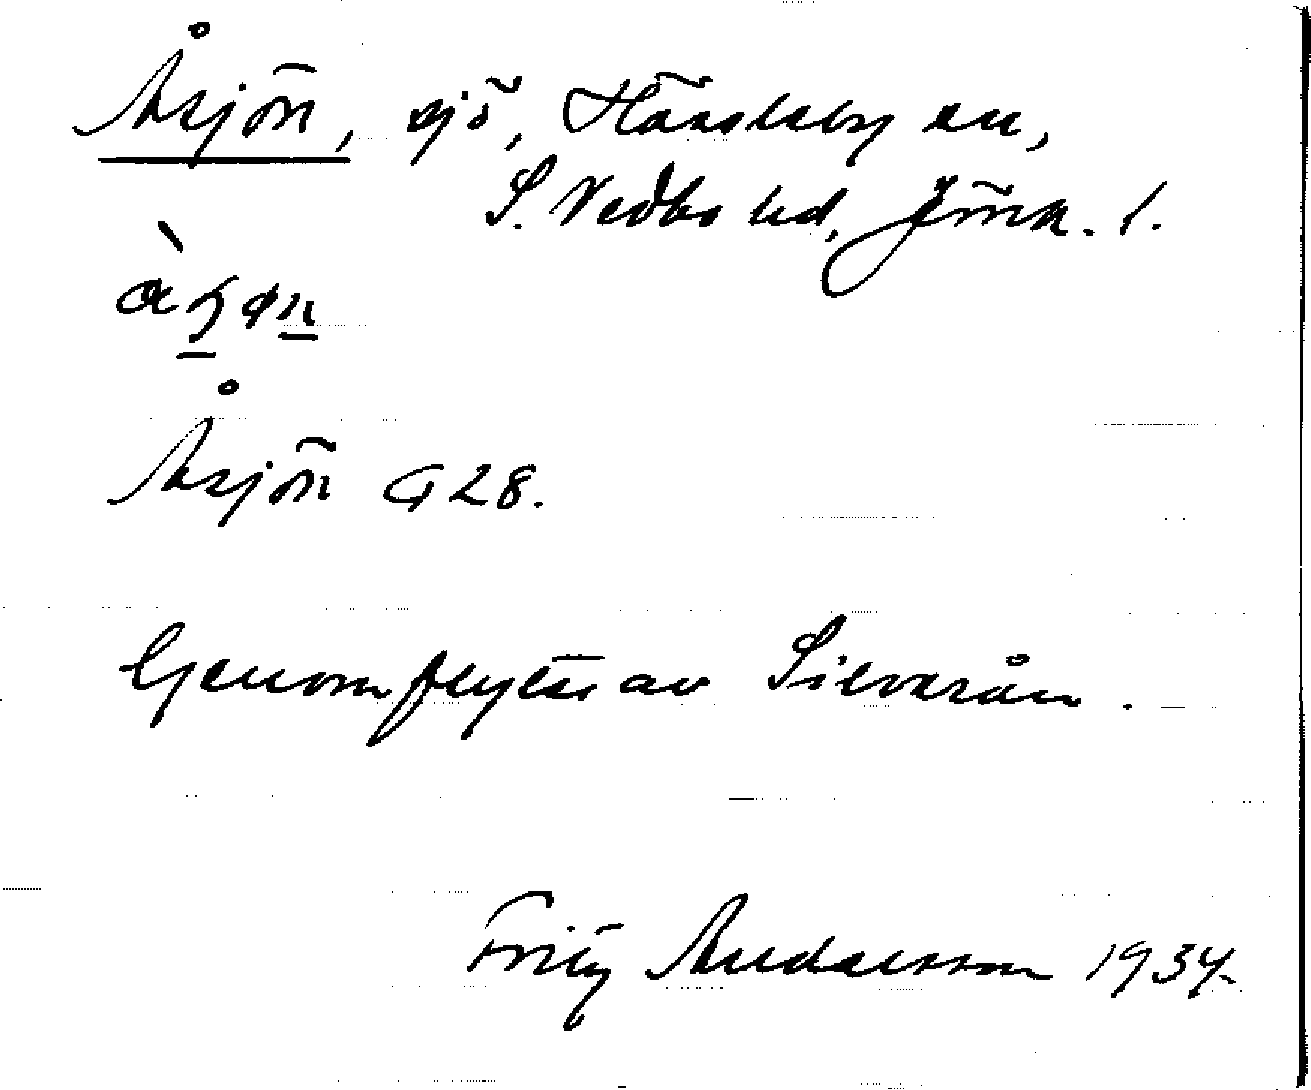 Åsjön, sjö, Hässleby sn,
S. Vedbo hd, Jönk. l.
Åsjön G 28.
Genomflytes av Silverån.
Fritz Andersson 1934.